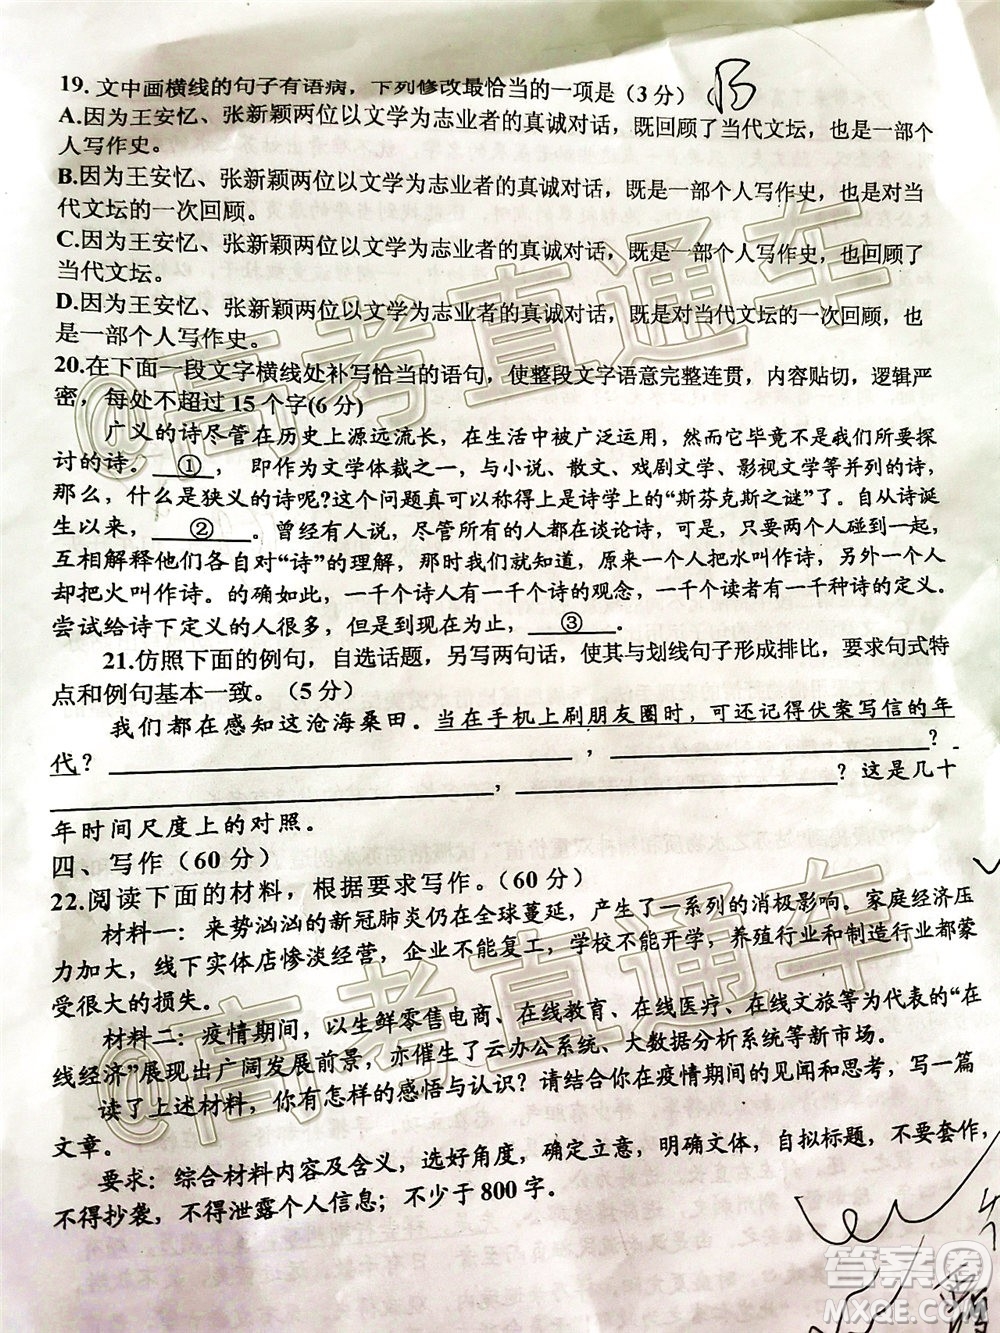 19. 文中画横线的句子有语病，下列修改最恰当的一项是（3分）
A.因为王安忆、张新颖两位以文学为志业者的真诚对话，既回顾了当代文坛，也是一部个
人写作史。
B.因为王安忆、张新颖两位以文学为志业者的真诚对话，既是一部个人写作史，也是对当
代文坛的一次回顾。
C.因为王安忆、张新颖两位以文学为志业者的真诚对话，既是一部个人写作史，也回顾了
当代文坛。
D.因为王安忆、张新颖两位以文学为志业者的真诚对话，既是对当代文坛的一次回顾，也
是一部个人写作史。
20.在下面一段文字横线处补写恰当的语句，使整段文字语意完整连贯，内容贴切，逻辑严
密，每处不超过15个字(6分)
广义的诗尽管在历史上源远流长，在生活中被广泛运用，然而它毕竟不是我们所要探
讨的诗。 ① ，即作为文学体裁之一，与小说、散文、戏剧文学、影视文学等并列的诗。
那么，什么是狭义的诗呢?这个问题真可以称得上是诗学上的“斯芬克斯之谜”了。自从诗诞
生以来， ② 。曾经有人说，尽管所有的人都在谈论诗，可是，只要两个人碰到一起，
互相解释他们各自对“诗”的理解，那么我们就知道，原来一个人把水叫作诗，另外一个人
却把火叫作诗。的确如此，一千个诗人有一千个诗的观念，一千个读者有一千种诗的定义。
尝试给诗下定义的人很多，但是到现在为止， ③ 。
21.仿照下面的例句，自选话题，另写两句话，使其与划线句子形成排比，要求句式特
点和例句基本一致。（5分）
我们都在感知这沧海桑田。当在手机上刷朋友圈时，可还记得伏案写信的年
代？ ， ？
， ？这是几十
年时间尺度上的对照。
四、写作（60分）
22.阅读下面的材料，根据要求写作。（60分）
材料一：来势汹汹的新冠肺炎仍在全球蔓延，产生了一系列的消极影响。家庭经济压
力加大，线下实体店惨淡经营，企业不能复工，学校不能开学，养殖行业和制造行业都蒙
受很大的损失。
材料二：疫情期间，以生鲜零售电商、在线教育、在线医疗、在线文旅等为代表的“在
线经济”展现出广阔发展前景，亦催生了云办公系统、大数据分析系统等新市场。
读了上述材料，你有怎样的感悟与认识？请结合你在疫情期间的见闻和思考，写一篇
文章。
要求：综合材料内容及含义，选好角度，确定立意，明确文体，自拟标题，不要套作，
不得抄袭，不得泄露个人信息；不少于800字。
@高考直通车
@高考直通车
答案圈
MXQE.COM